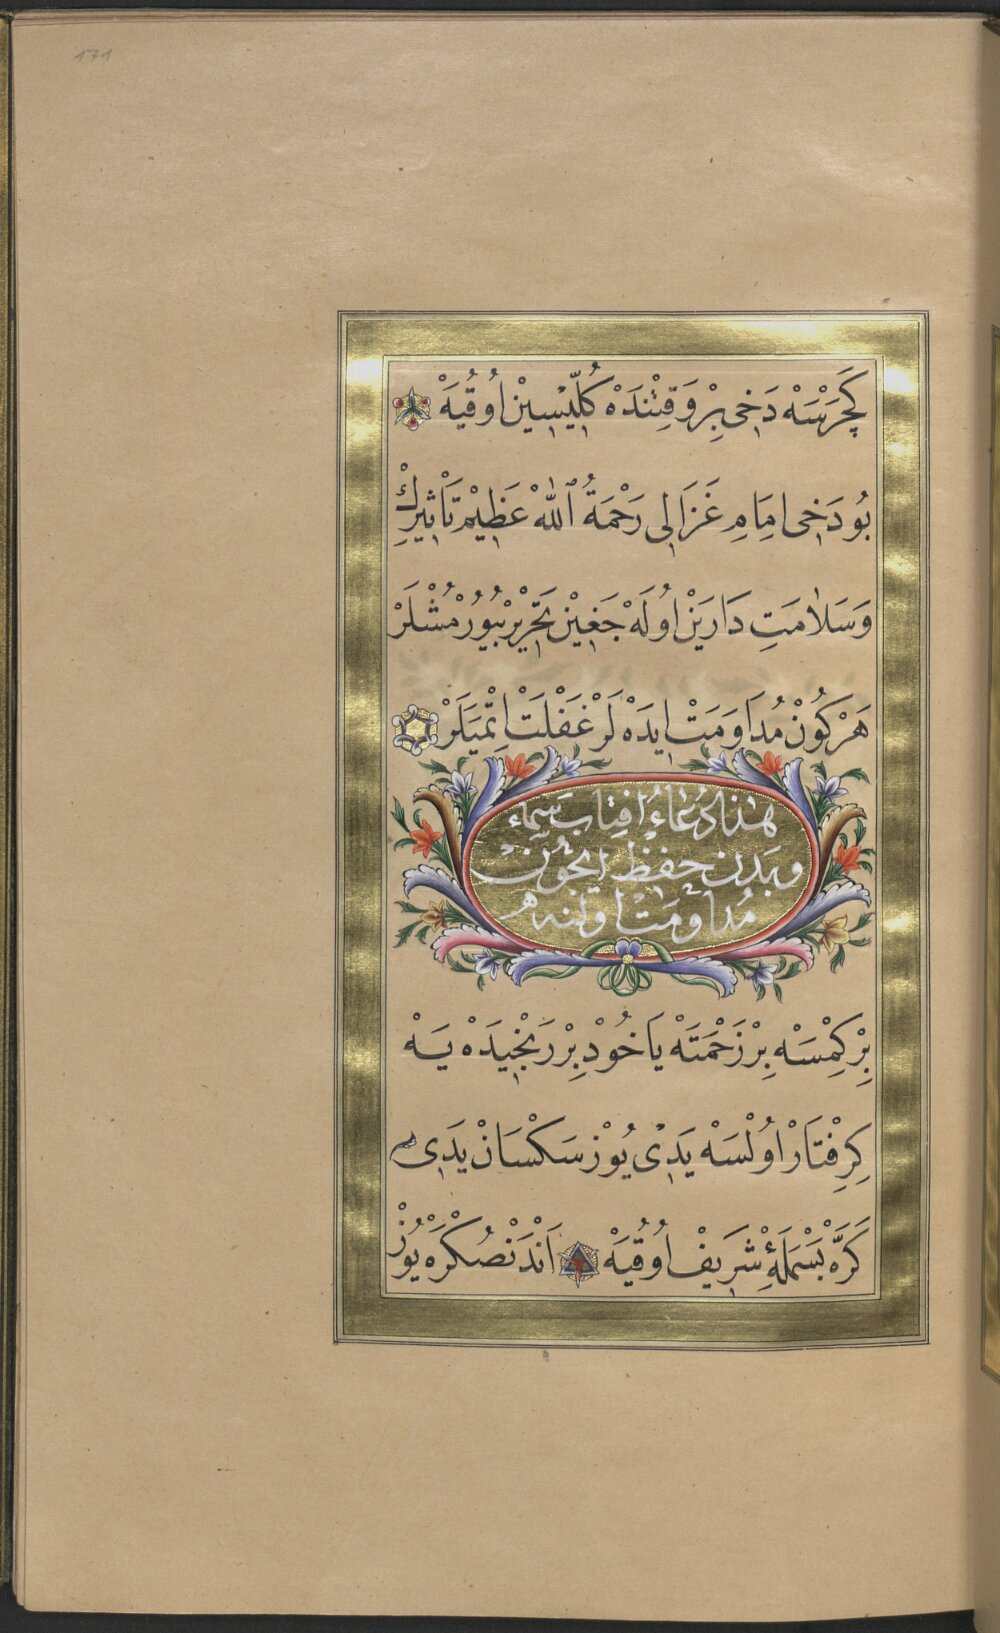 171
كَچَرْسَهْ دَخِى بِرْ وَقِتْنَدَهْ كُلِّيْسِيْنْ اُوقُيَهْ
بُو دَخِى امِامِ غَزَالِى رَحْمَةُ ٱللّٰهْ عَظِيْمْ تَأْثِيرِكْ
وَسَلَامَتِ دَارَيَنْ اُولَهْ جَغِيْنْ تَحْرِيْرْ بُيُورْمُشْلَرْ
هَرْ كُونْ مُدَاوَمَتْ ايِدَهْ لَرْ غَفْلَتْ اِتْمِيَلَرْ
هٰذَا دُعَاءُ افِتَابِ سِمَاءْ
وبَدَنْ حِفْظِ ايچُونْ
مُدَاوَمَتْ اولنه
بِرْ كِمْسَهْ بِرْ زَحْمَتَهْ يَاخُوْدْ بِرْ رَنْجِيدَهْ يَهْ
كِرِفْتَارْ اُولْسَهْ يَدِىْ يُوْزْ سَكْسَانْ يَدِى
كَرَّهْ بَسْمَلَۀِ شَرِيفْ اُوقُيَهْ اَنْدَنْصُكْرَهْ يُوزْ